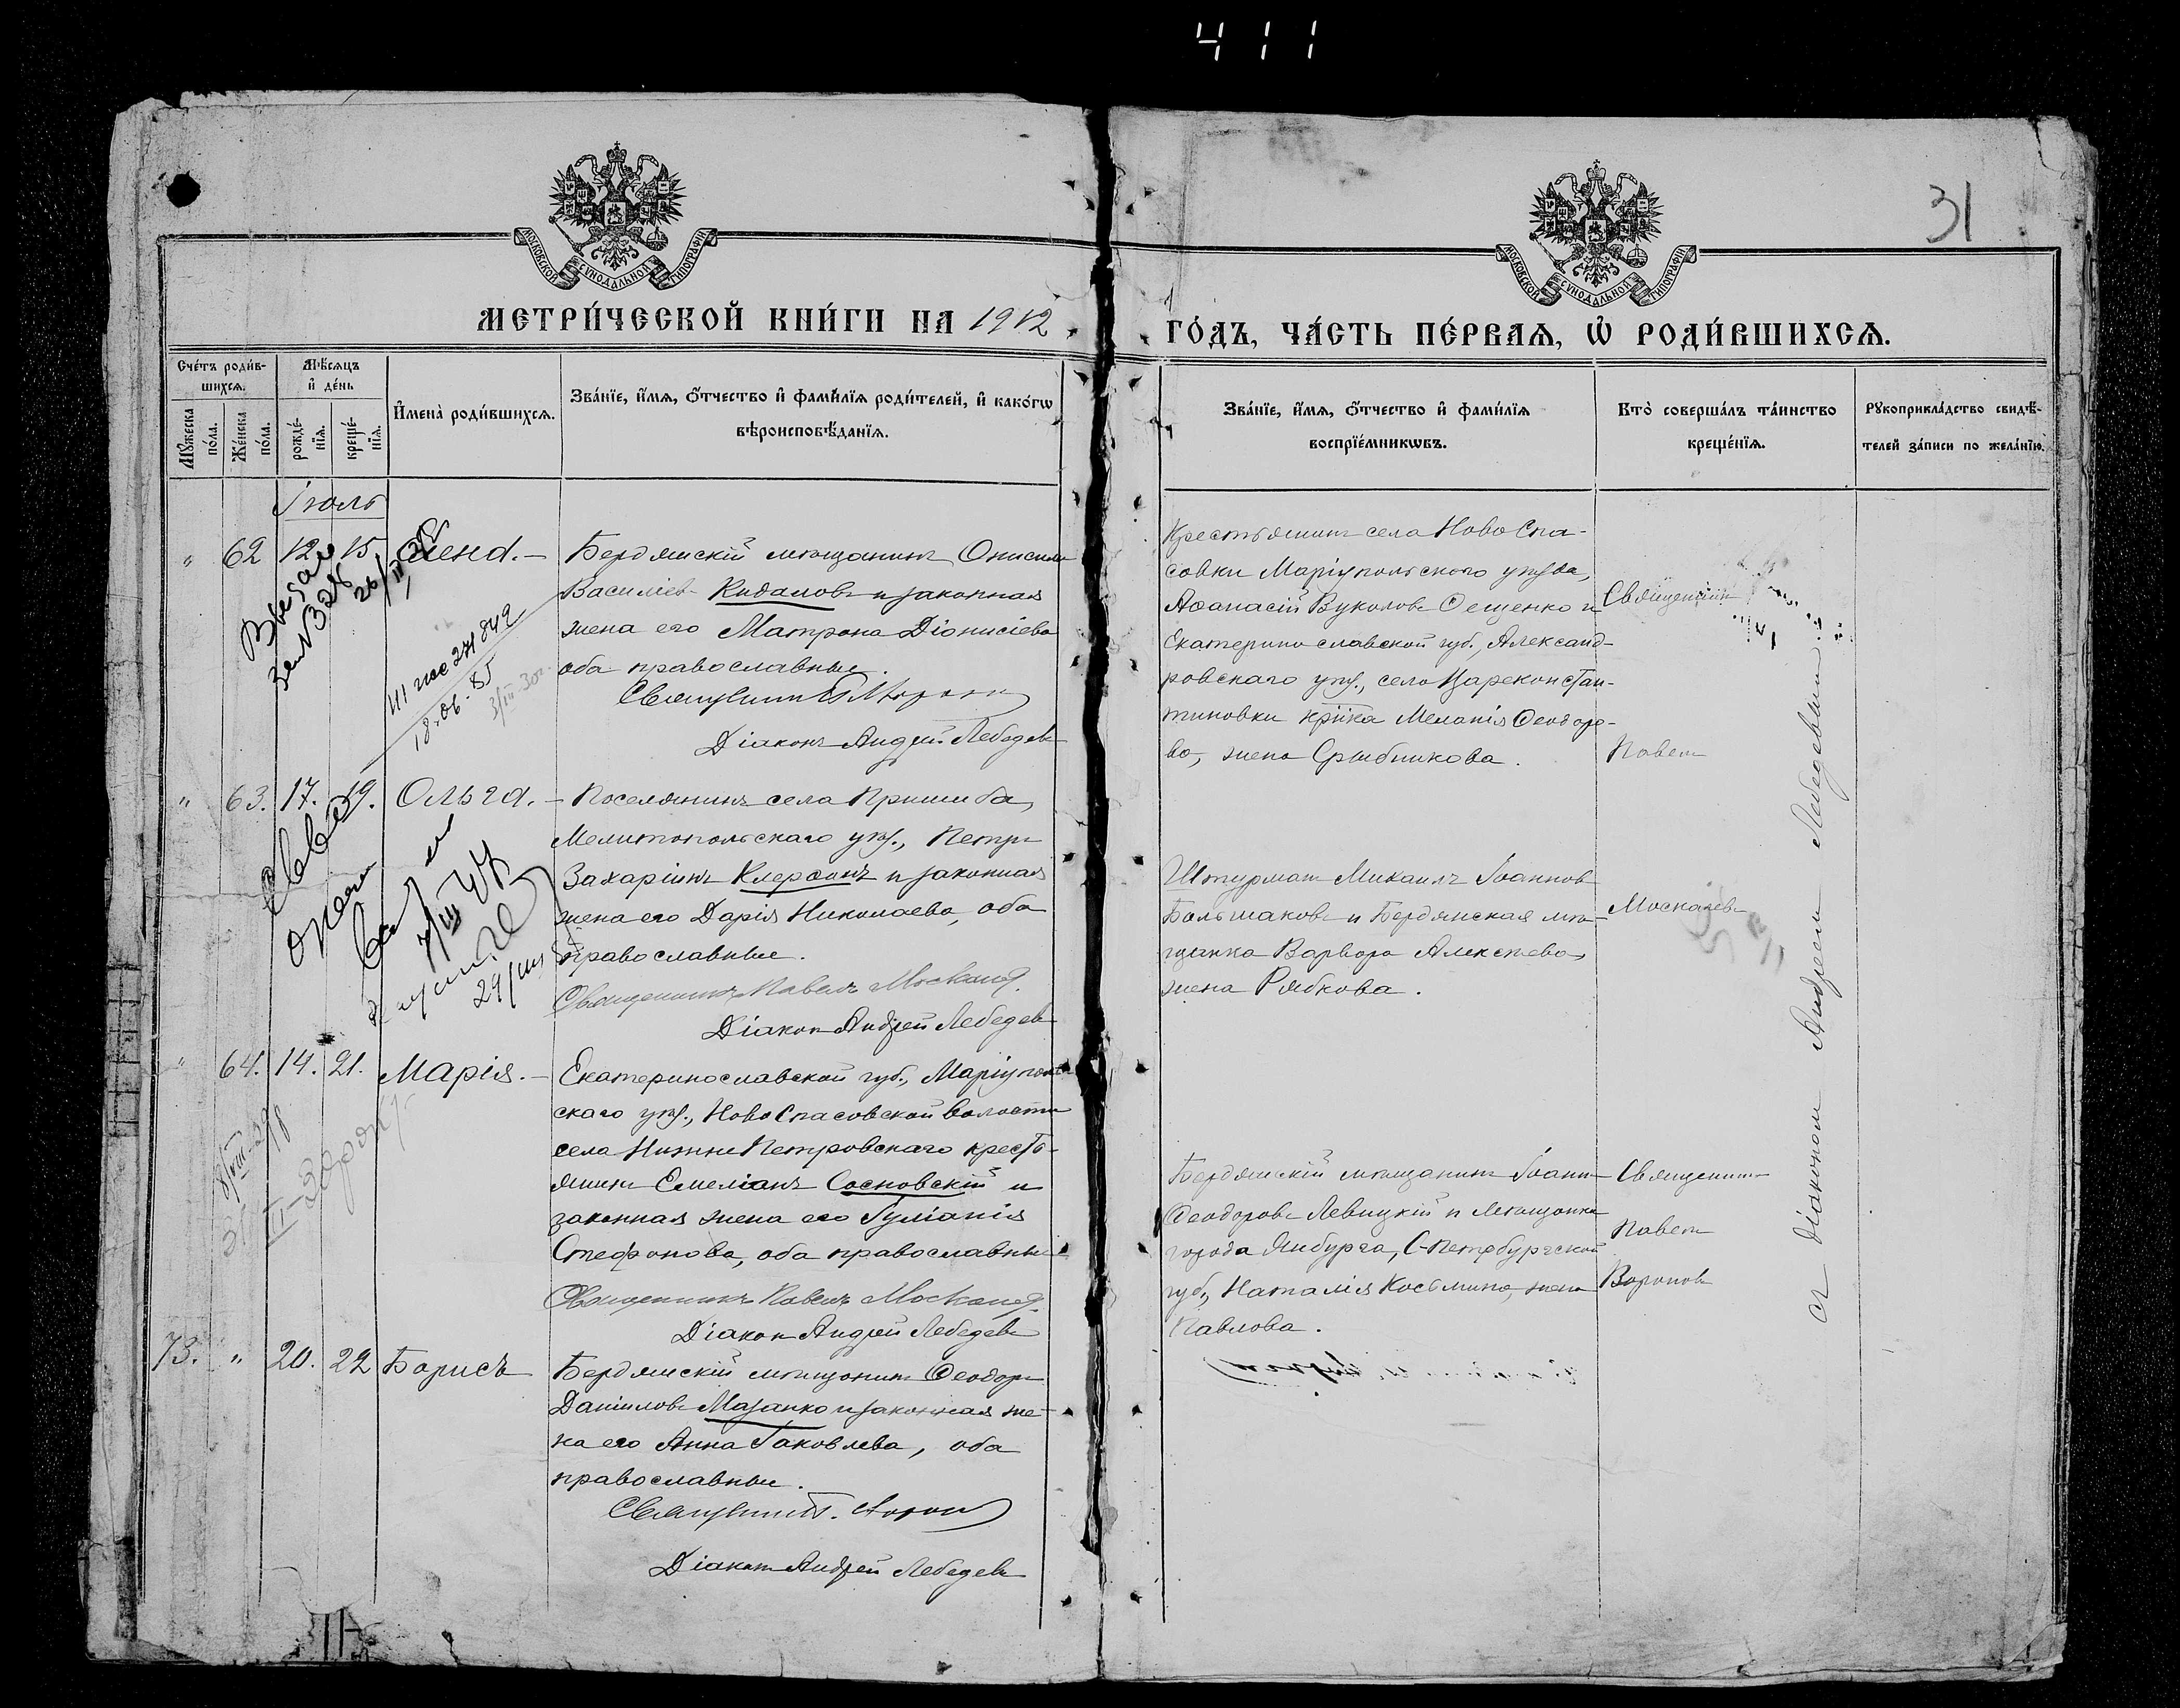 411
31
МОСКОВСКОЙ СѴНОДАЛЬНОЙ ТИПОГРАФІИ
МОСКОВСКОЙ СѴНОДАЛЬНОЙ ТИПОГРАФІИ
МЕТРИ́ЧЕСКОЙ КНИ́ГИ НА 1912
ГО́ДЪ, ЧА́СТЬ ПЕ́РВАЯ, Ѡ҆ РОДИ́ВШИХСѦ.
Сче́тъ роди́в-
шихсѧ.
Мꙋ́жеска по́ла.
Же́нска по́ла.
Мѣ́сѧцъ
и҆ де́нь
рожде́-
нїѧ.
креще́-
нїѧ.
И҆мена̀ роди́вшихсѧ.
Зва́нїе, и҆́мѧ, ѻ҆́тчество и҆ фами́лїѧ роди́телей, и҆ како́гѡ
вѣроисповѣ́данїѧ.
Зва́нїе, и҆́мѧ, ѻ҆́тчество и҆ фами́лїѧ
воспрїе́мникѡвъ.
Кто̀ соверша́лъ та́инство
креще́нїѧ.
Рꙋкоприкла́дство свидѣ́-
телей за́писи по жела́нїю.
Іюль
" 62 12 15 Бердянскій мѣщанинъ Онисимъ
Васильевъ Кидаловъ и законная
жена его Матрона Діонисіева
оба православные.
Діаконъ Андрей Лебедевъ
Крестьянинъ села НовоСпа-
совки Маріупольскаго уѣзда,
Аѳанасій Вуколовъ Ѳещенко и
Екатеринославской губ., Александ-
ровскаго уѣз., села Цареконстан-
тиновки кр҃нка Меланія Ѳеодоро-
ва, жена
Священникъ
Павелъ
Москалевъ
18.06.85
" 63. 17. 19. Ольга. - Поселянинъ села Пришиба,
Мелитопольскаго уѣз., Петръ
Захаріинъ Клерсонъ и законная
жена его Дарія Николаева, оба
православные.
Священникъ Павелъ Москалев
Діаконъ Андрей Лебедевъ
Штурманъ Михаилъ Іоанновъ
Большаковъ и Бердянская мѣ-
щанка Варвара Алексѣева,
жена Рябкова.
" 64. 14. 21. Марія. - Екатеринославской губ., Маріуполь
скаго уѣз., НовоСпасовской волости
села НижнеПетровскаго кресть-
янинъ Емеліанъ Сосновскій и
законная жена его Іуліанія
Стефанова, оба православные
Священникъ Павелъ Москалев
Діаконъ Андрей Лебедевъ
Бердянскій мѣщанинъ Іоаннъ
Ѳеодоровъ Левицкій и мѣщанка
города Ямбурга, С-Петербургской
губ., Наталія Косьмина, жена
Павлова.
Священникъ
Павелъ
Вороновъ
съ діакономъ Андреемъ Лебедевымъ
73. " 20. 22 Борисъ Бердянскій мѣщанинъ Ѳеодоръ
Даніиловъ Мазанко и законная же-
на его Анна Іаковлева, оба
православные.
Діаконъ Андрей Лебедевъ